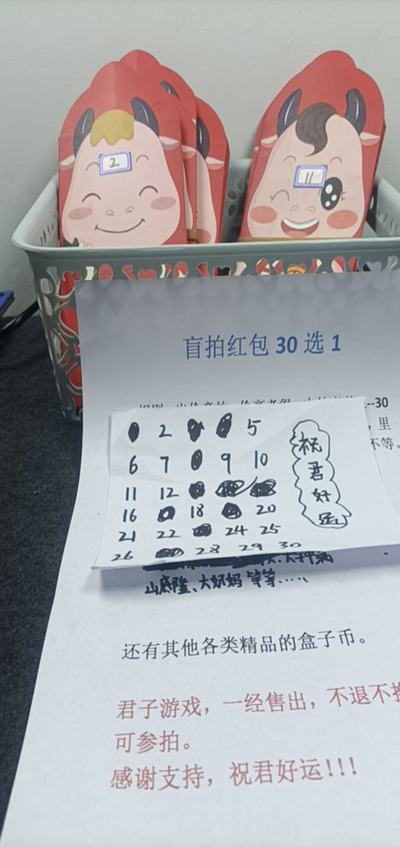 2
11
盲拍红包 30 选 1
--30
里
不等。
2 5
6 7 9 10
11 12
16 18 20
21 22 24 25
26 28 29 30
祝君好运
山底隆、大奶妈 等等……
还有其他各类精品的盒子币。
君子游戏，一经售出，不退不换
可参拍。
感谢支持，祝君好运!!!